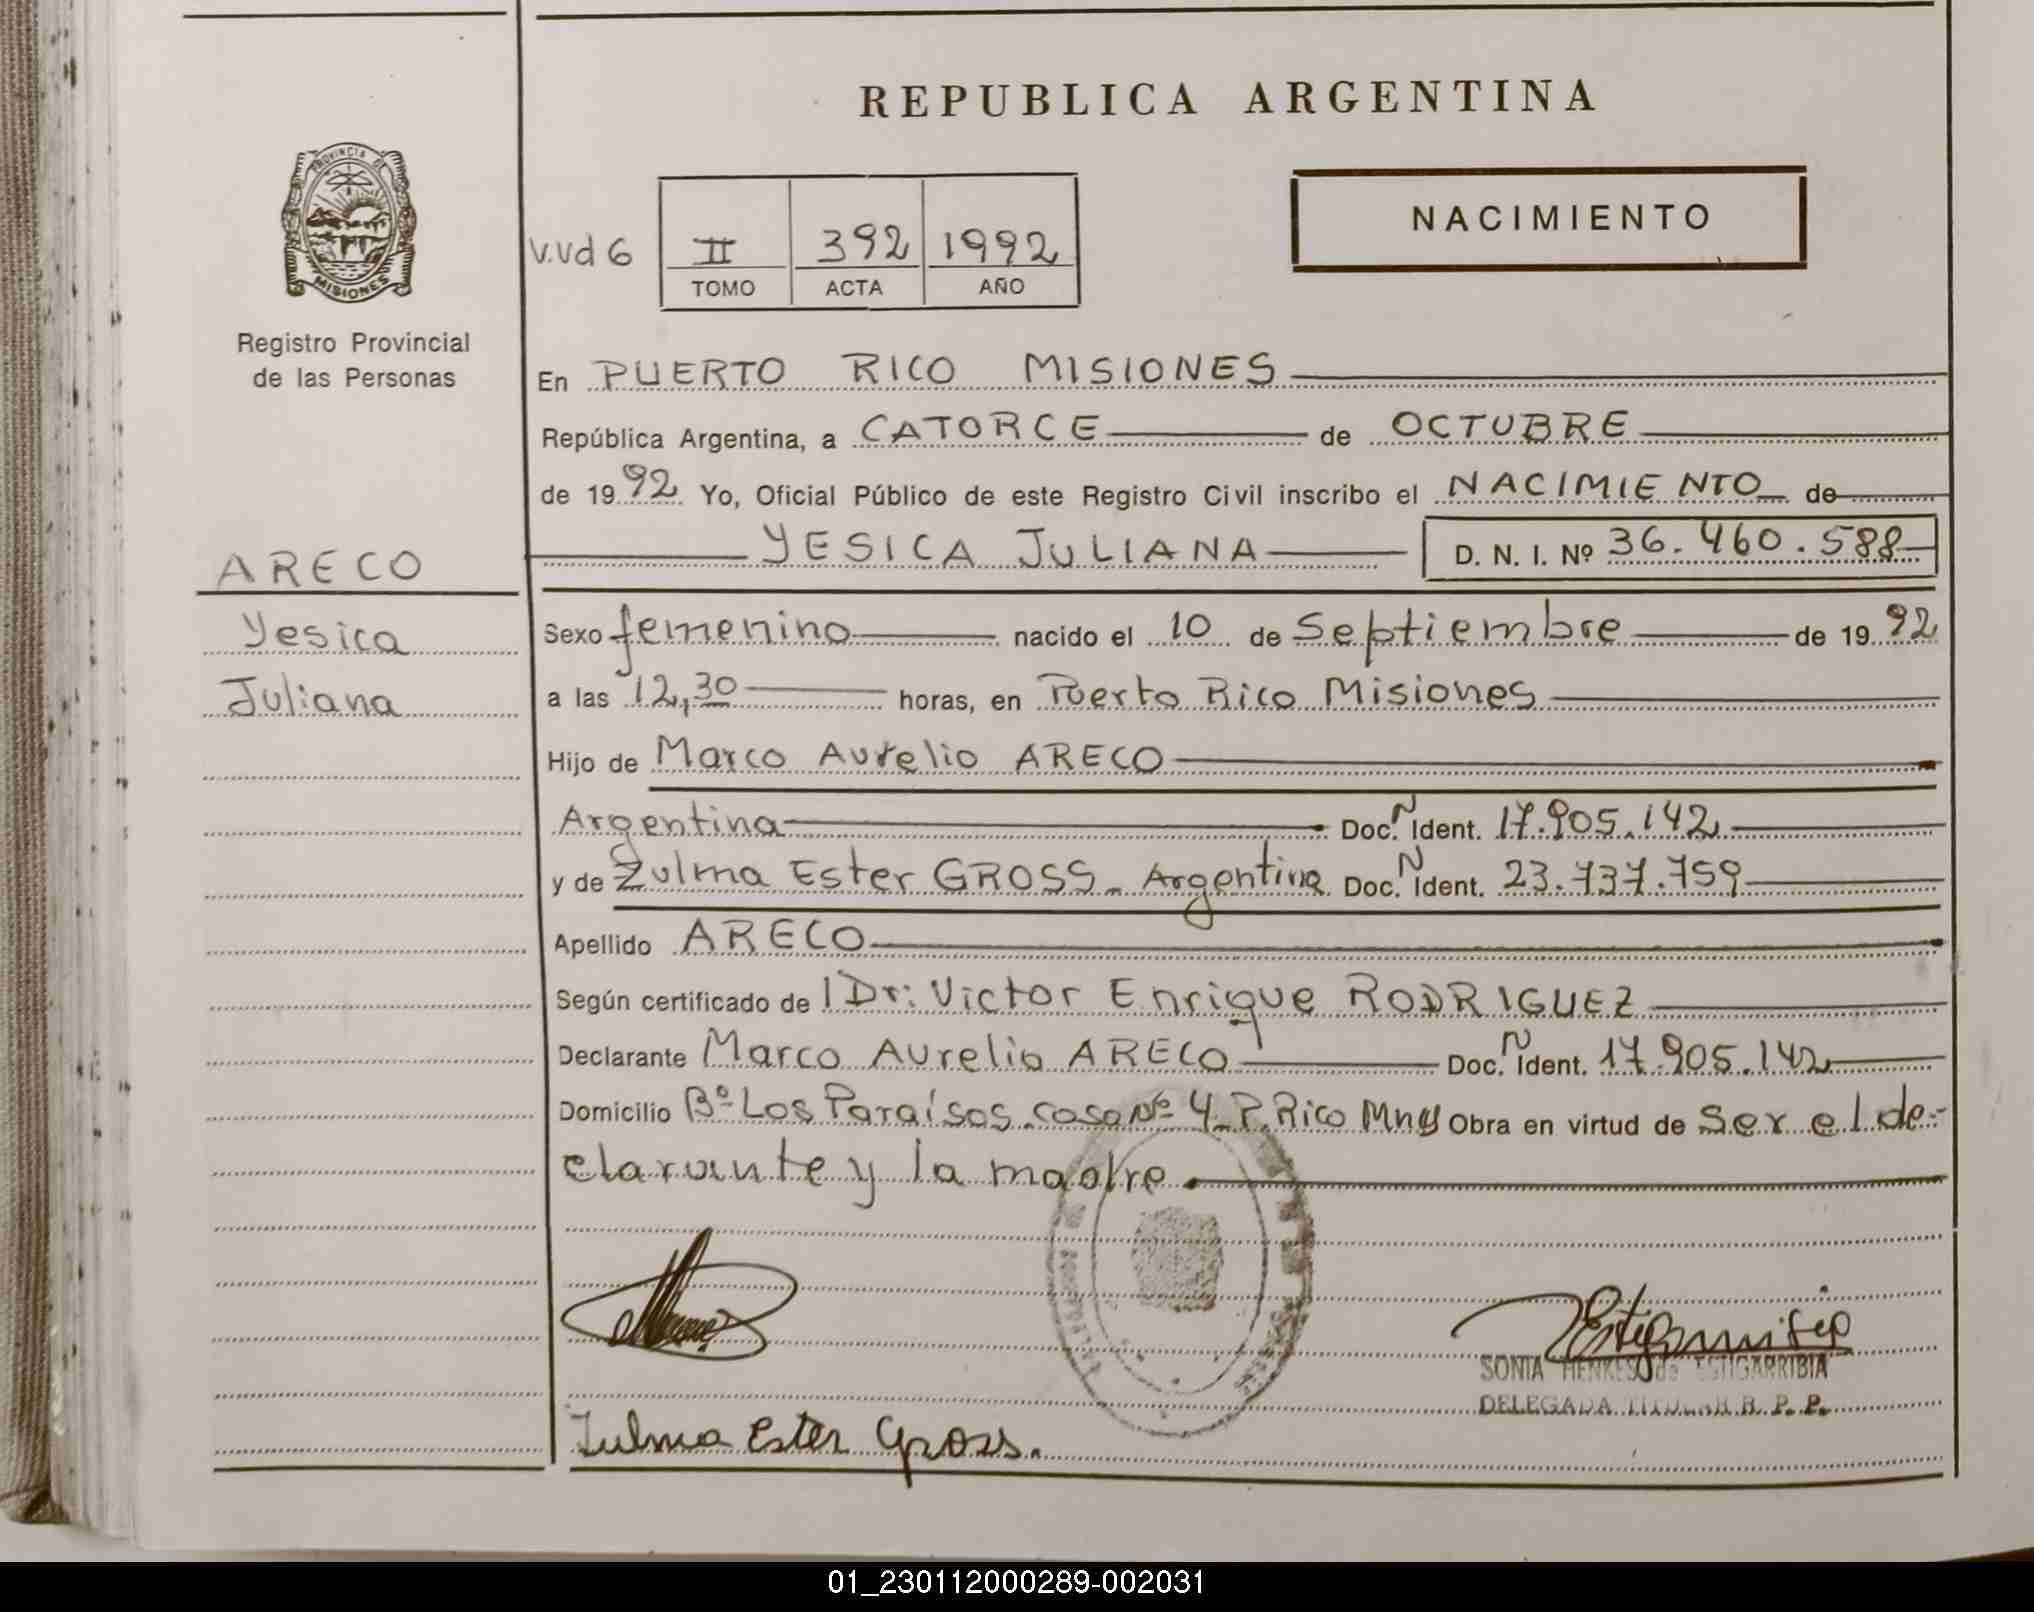 REPUBLICA ARGENTINA
PROVINCIA DE
MISIONES
NACIMIENTO
V.Vd 6 II 392 1992
TOMO ACTA AÑO
Registro Provincial
de las Personas
En PUERTO RICO MISIONES
República Argentina, a CATORCE de OCTUBRE
de 1992 Yo, Oficial Público de este Registro Civil inscribo el NACIMIENTO de
YESICA JULIANA D. N. I. Nº 36.460.588
ARECO
Yesica
Juliana
Sexo femenino nacido el 10 de Septiembre de 1992
a las 12,30 horas, en Puerto Rico Misiones
Hijo de Marco Aurelio ARECO
Argentina Doc. N Ident. 17.905.142
y de Zulma Ester GROSS - Argentina Doc. N Ident. 23.737.759
Apellido ARECO
Según certificado de l Dr: Victor Enrique RODRIGUEZ
Declarante Marco Aurelio ARECO Doc. N Ident. 17.905.142
Domicilio Bº Los Paraísos casa Nº 4 - P. Rico Mnes Obra en virtud de ser el de-
clarante y la madre.
SONIA HENKES de ESTIGARRIBIA
DELEGADA TITULAR R. P. P.
Zulma Ester Gross.
01_230112000289-002031